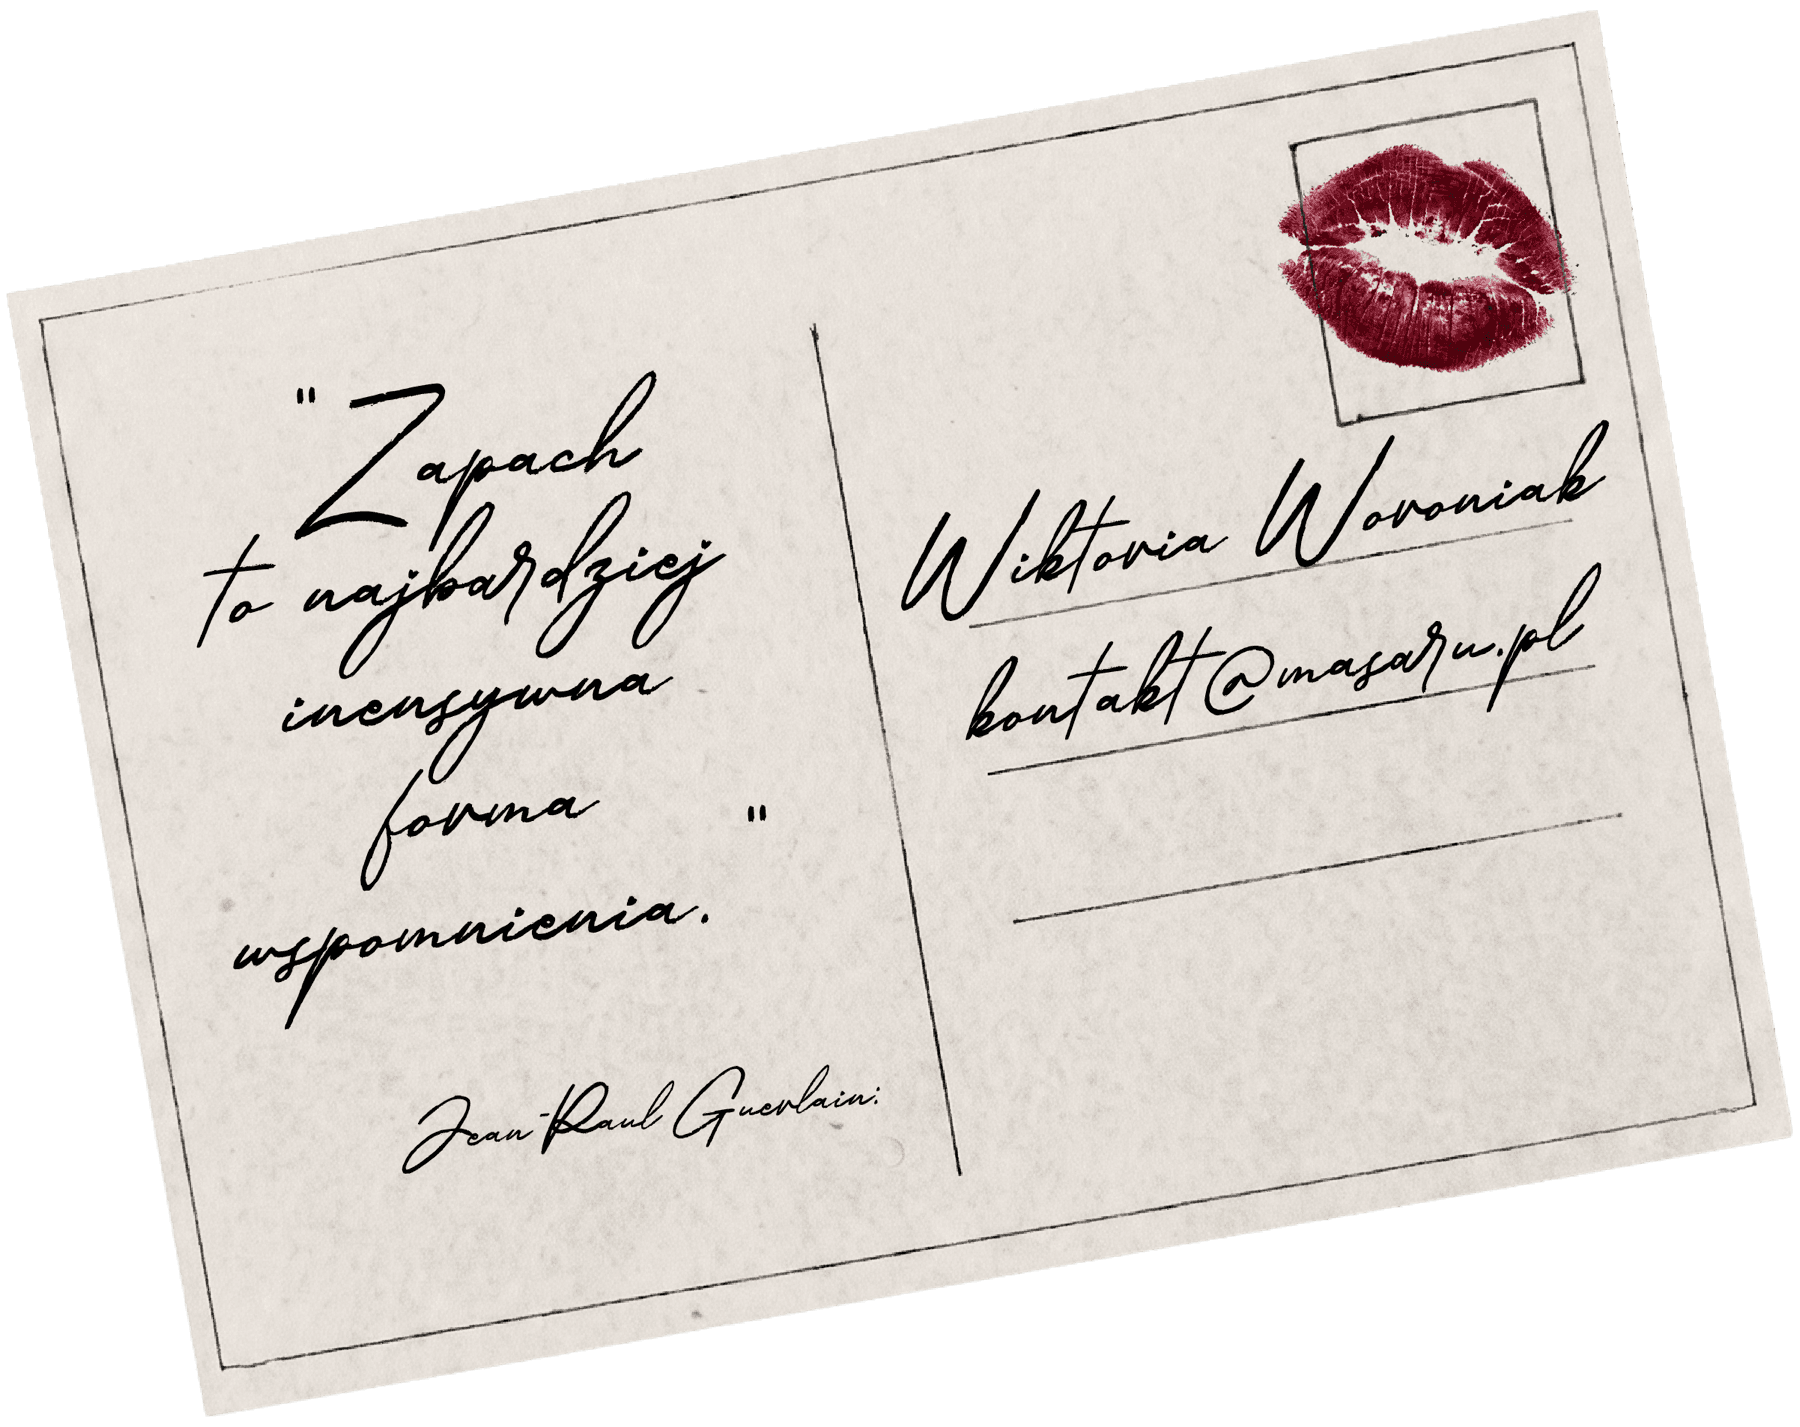 "Zapach
to najbardziej
inensywna
forma "
wspomnienia.
Jean-Paul Guerlain:
Wiktoria Woroniak
kontakt@masaru.pl